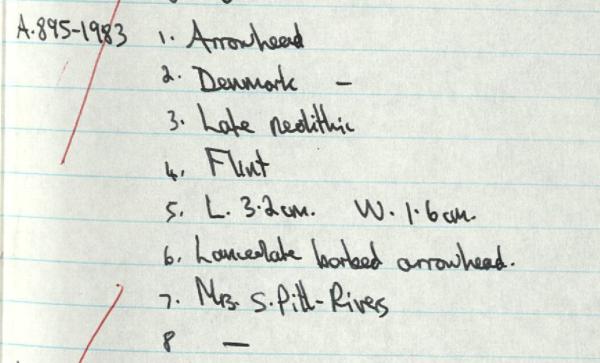 A.895-1983 1. Arrowhead
2. Denmark –
3. Late neolithic
4. Flint
5. L. 3.2cm. W. 1.6cm.
6. Lanceolate barbed arrowhead.
7. Mrs. S. Pitt-Rivers
8 –